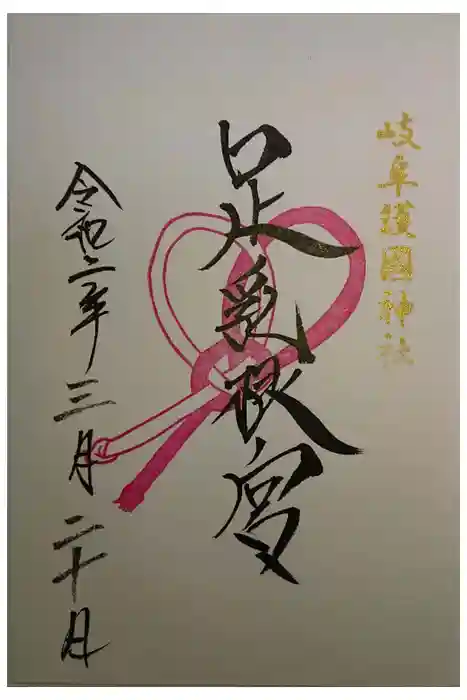 岐阜護國神社
足乳根宮
令和二年三月二十日